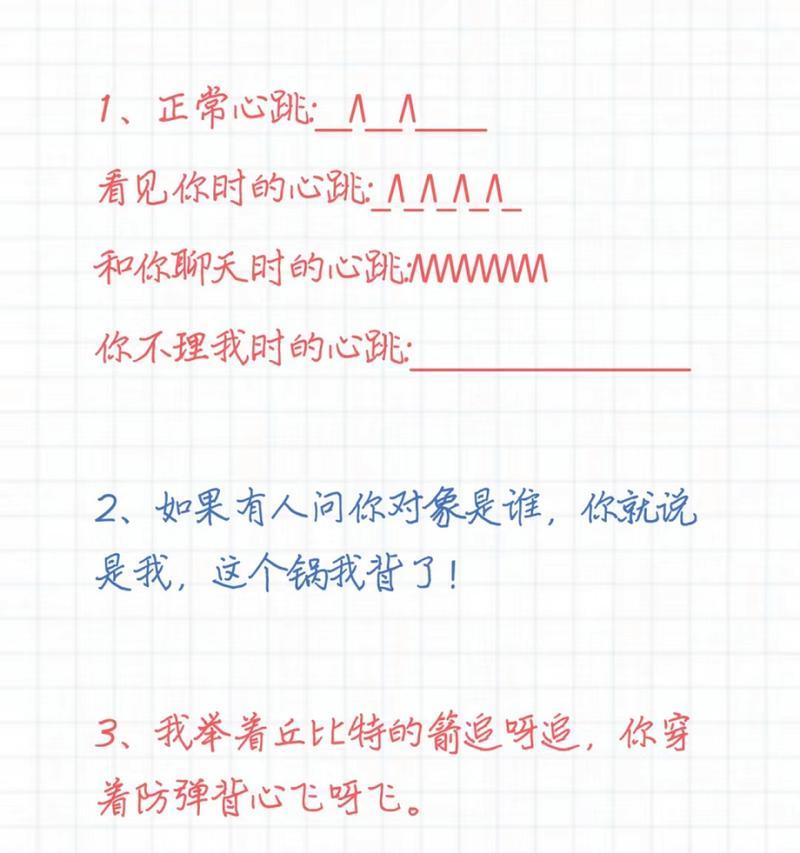 1、正常心跳:__∧__∧____
看见你时的心跳:_∧_∧_∧_∧_
和你聊天时的心跳:∧∧∧∧∧∧∧∧
你不理我时的心跳:________________
2、如果有人问你对象是谁，你就说
是我，这个锅我背了！
3、我举着丘比特的箭追呀追，你穿
着防弹背心飞呀飞。